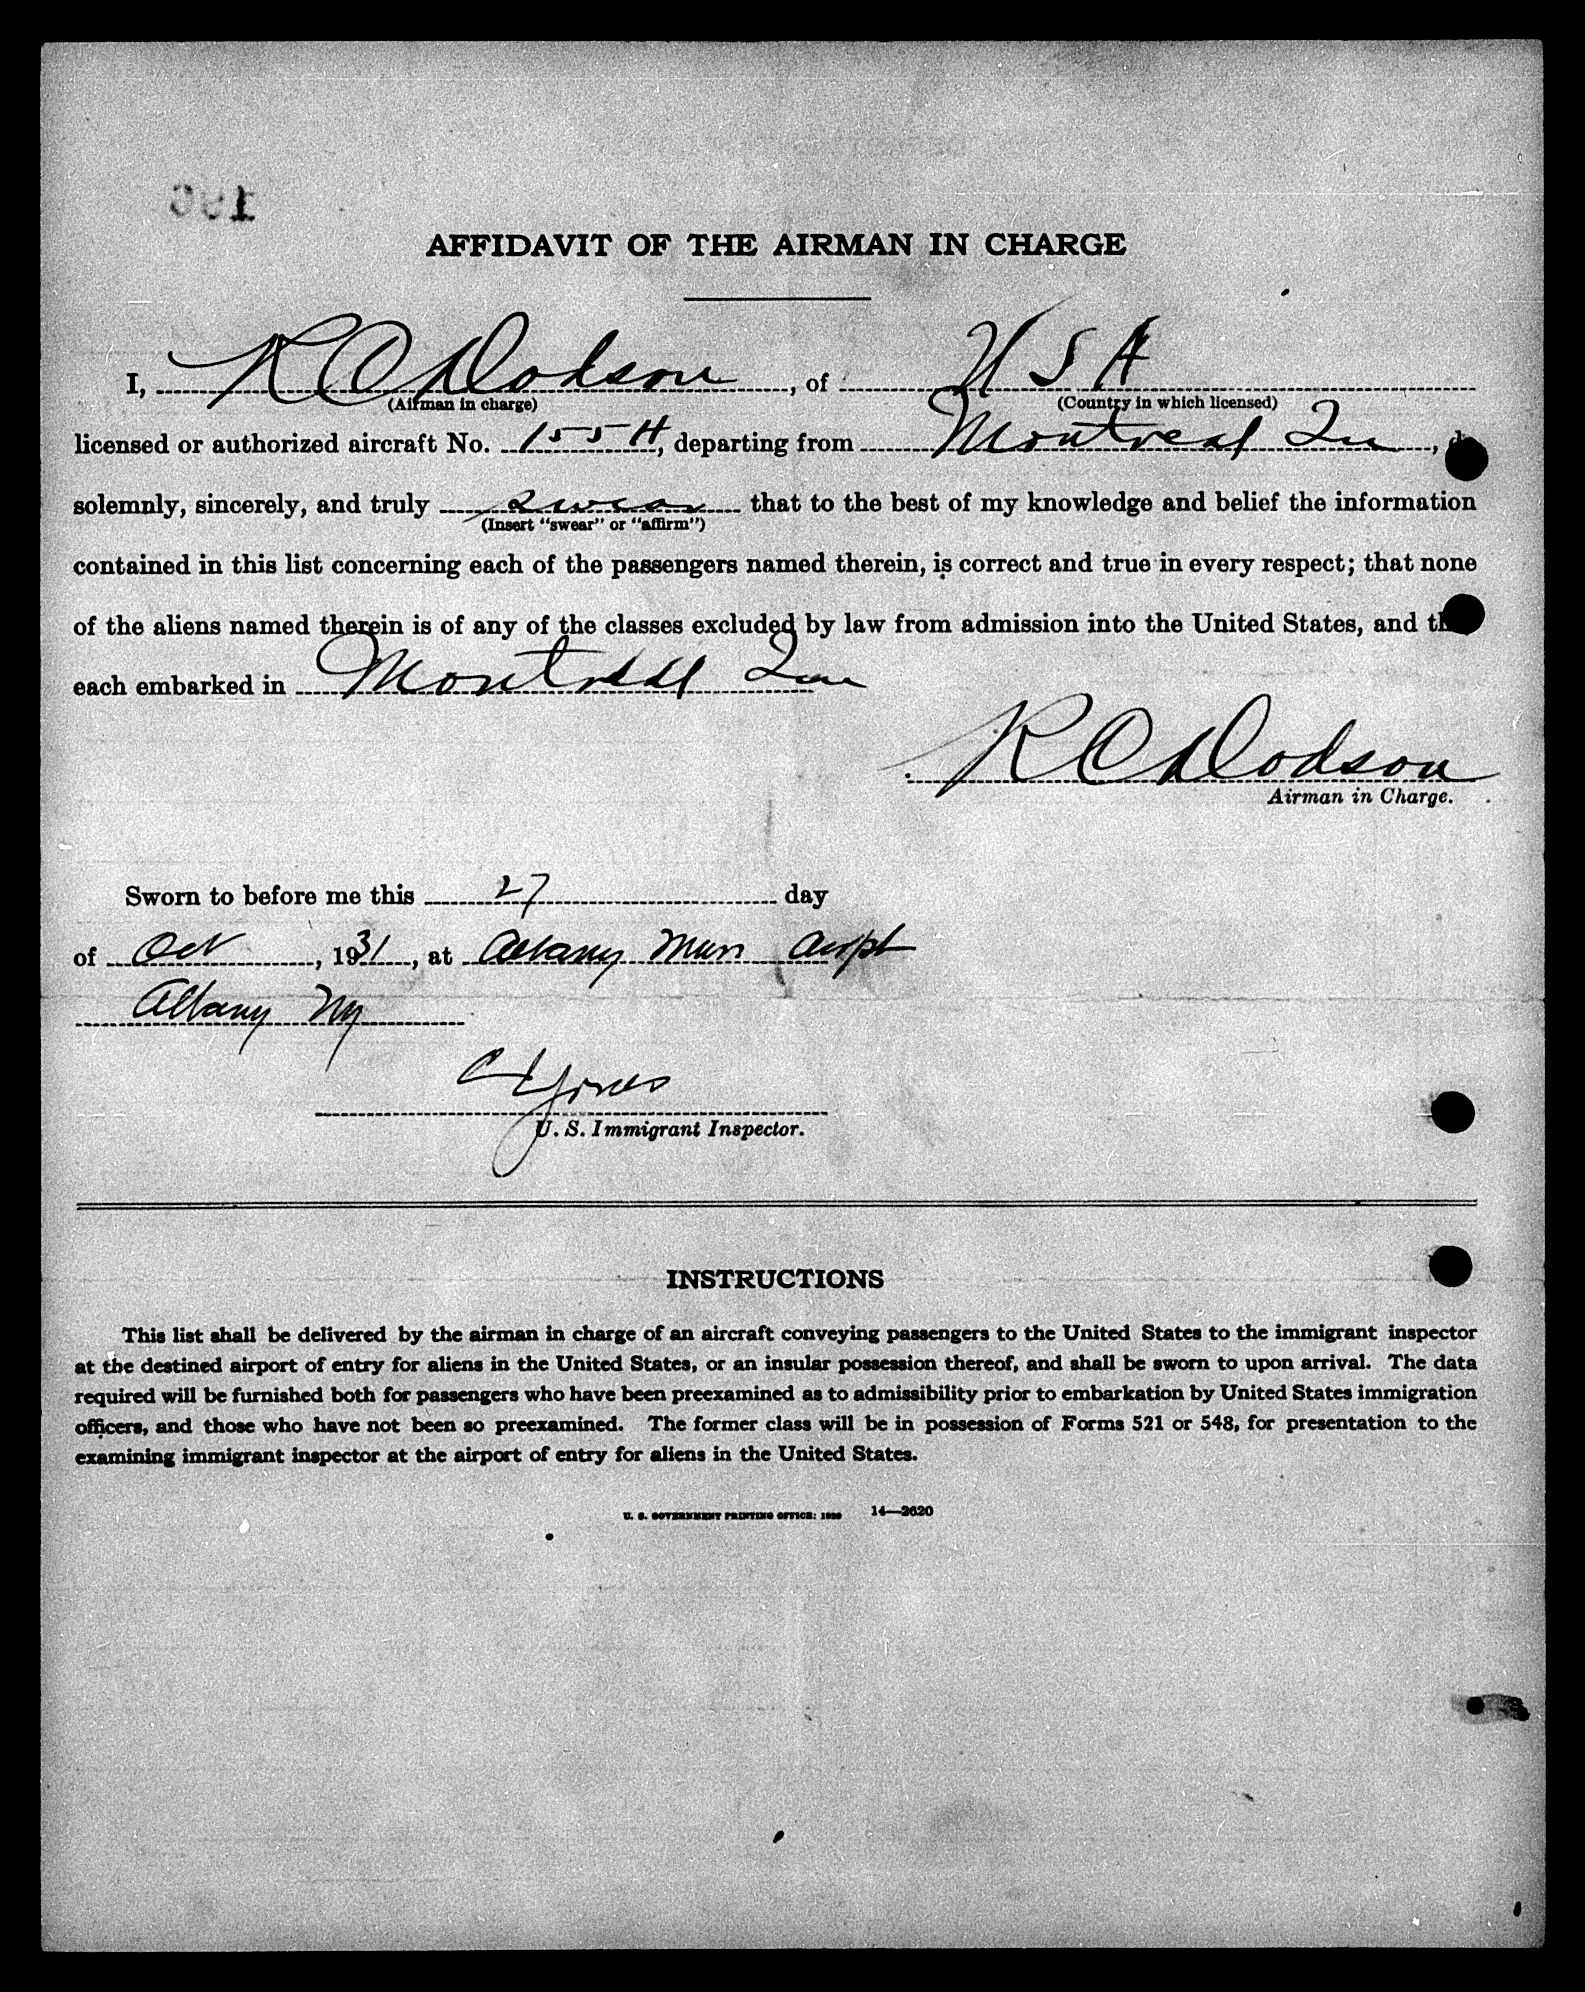 AFFIDAVIT OF THE AIRMAN IN CHARGE
I, R C Dodson, of U S A
(Airman in charge) (Country in which licensed)
licensed or authorized aircraft No. 155H, departing from Montreal Que,
solemnly, sincerely, and truly swear that to the best of my knowledge and belief the information
(Insert "swear" or "affirm")
contained in this list concerning each of the passengers named therein, is correct and true in every respect; that none
of the aliens named therein is of any of the classes excluded by law from admission into the United States, and
each embarked in Montreal Que
R C Dodson
Airman in Charge.
Sworn to before me this 27 day
of Oct, 1931, at Albany Mun Airpt
Albany Ny
Jones
U. S. Immigrant Inspector.
INSTRUCTIONS
This list shall be delivered by the airman in charge of an aircraft conveying passengers to the United States to the immigrant inspector
at the destined airport of entry for aliens in the United States, or an insular possession thereof, and shall be sworn to upon arrival. The data
required will be furnished both for passengers who have been preexamined as to admissibility prior to embarkation by United States immigration
officers, and those who have not been so preexamined. The former class will be in possession of Forms 521 or 548, for presentation to the
examining immigrant inspector at the airport of entry for aliens in the United States.
U. S. GOVERNMENT PRINTING OFFICE: 14—2620